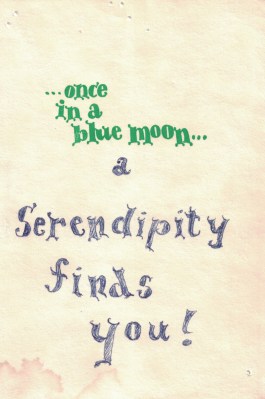 ...once
in a
blue moon...
a
Serendipity
finds
you!